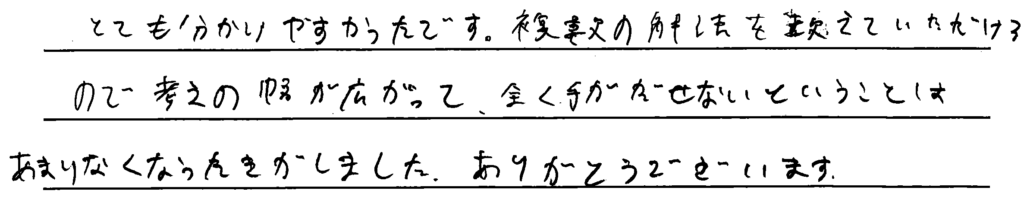 とても分かりやすかったです。複数の解法を教えていただける
ので考えの幅が広がって、全く手がだせないということは
あまりなくなった気がしました。ありがとうございます。